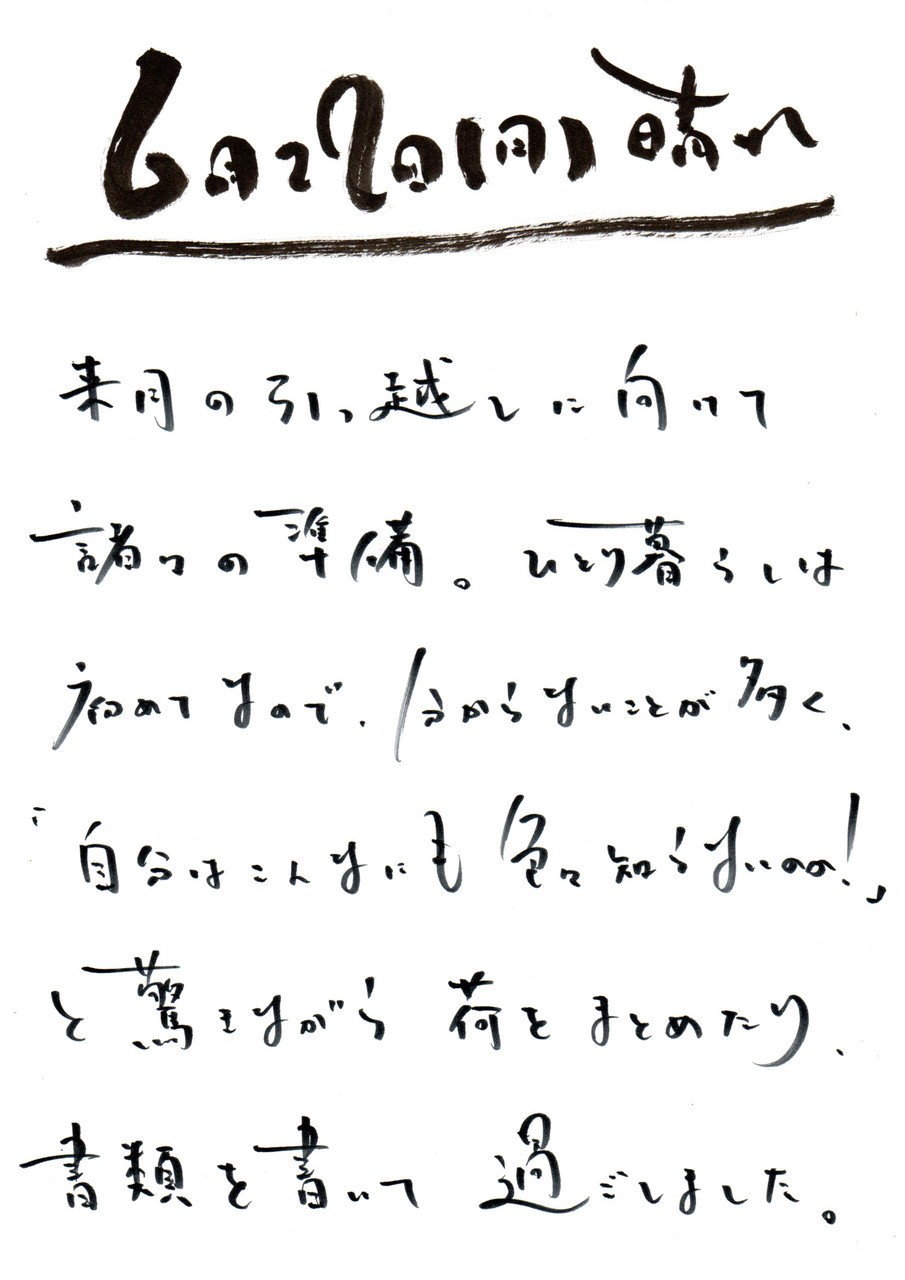 6月27日(月)晴れ
来月の引っ越しに向けて
諸々の準備。ひとり暮らしは
初めてなので、分からないことが多く、
「自分はこんなにも色々知らないのか!」
と驚きながら 荷をまとめたり、
書類を書いて 過ごしました。